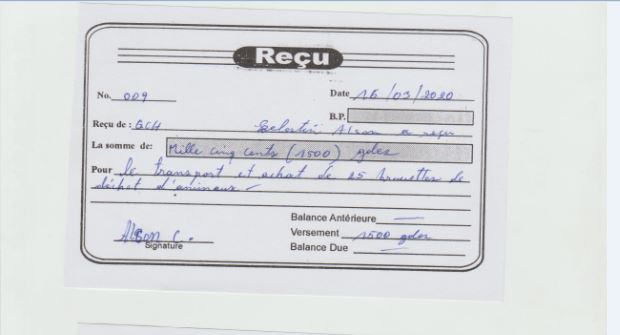 Reçu
No. 009 Date 16/03/2020
B.P.
Reçu de : GCH Celestin Alson a reçu
La somme de: Mille cinq cents (1500) gdes
Pour le transport et achat de 25 brouettes de
déchet d'animaux -
Balance Antérieure —
Alson C. Versement 1500 gdes
Signature Balance Due —